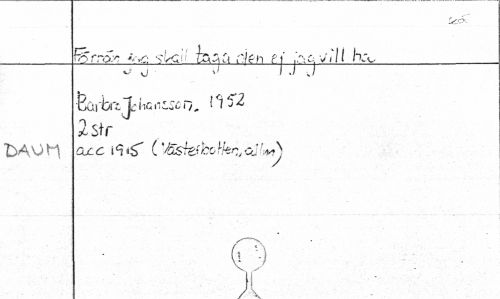 Förrän jag skall taga den ej jag vill ha
Barbro Johansson. 1952
2 str
DAUM acc 1915 (Västerbotten, allm)